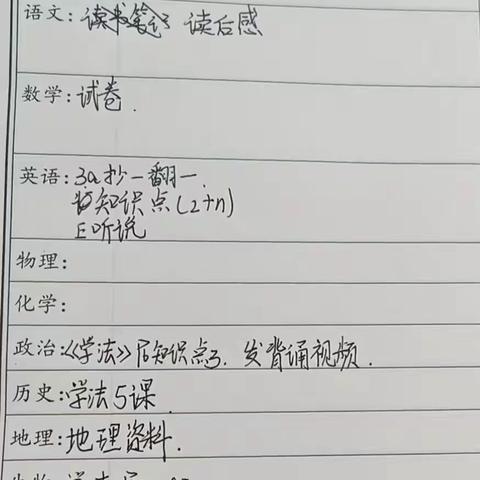 语文: 读后感
数学: 试卷.
英语: 3a抄一翻一.
知识点(2+n)
E听说
物理:
化学:
政治:《学法》后知识点3. 发背诵视频.
历史: 学法5课.
地理: 地理资料.